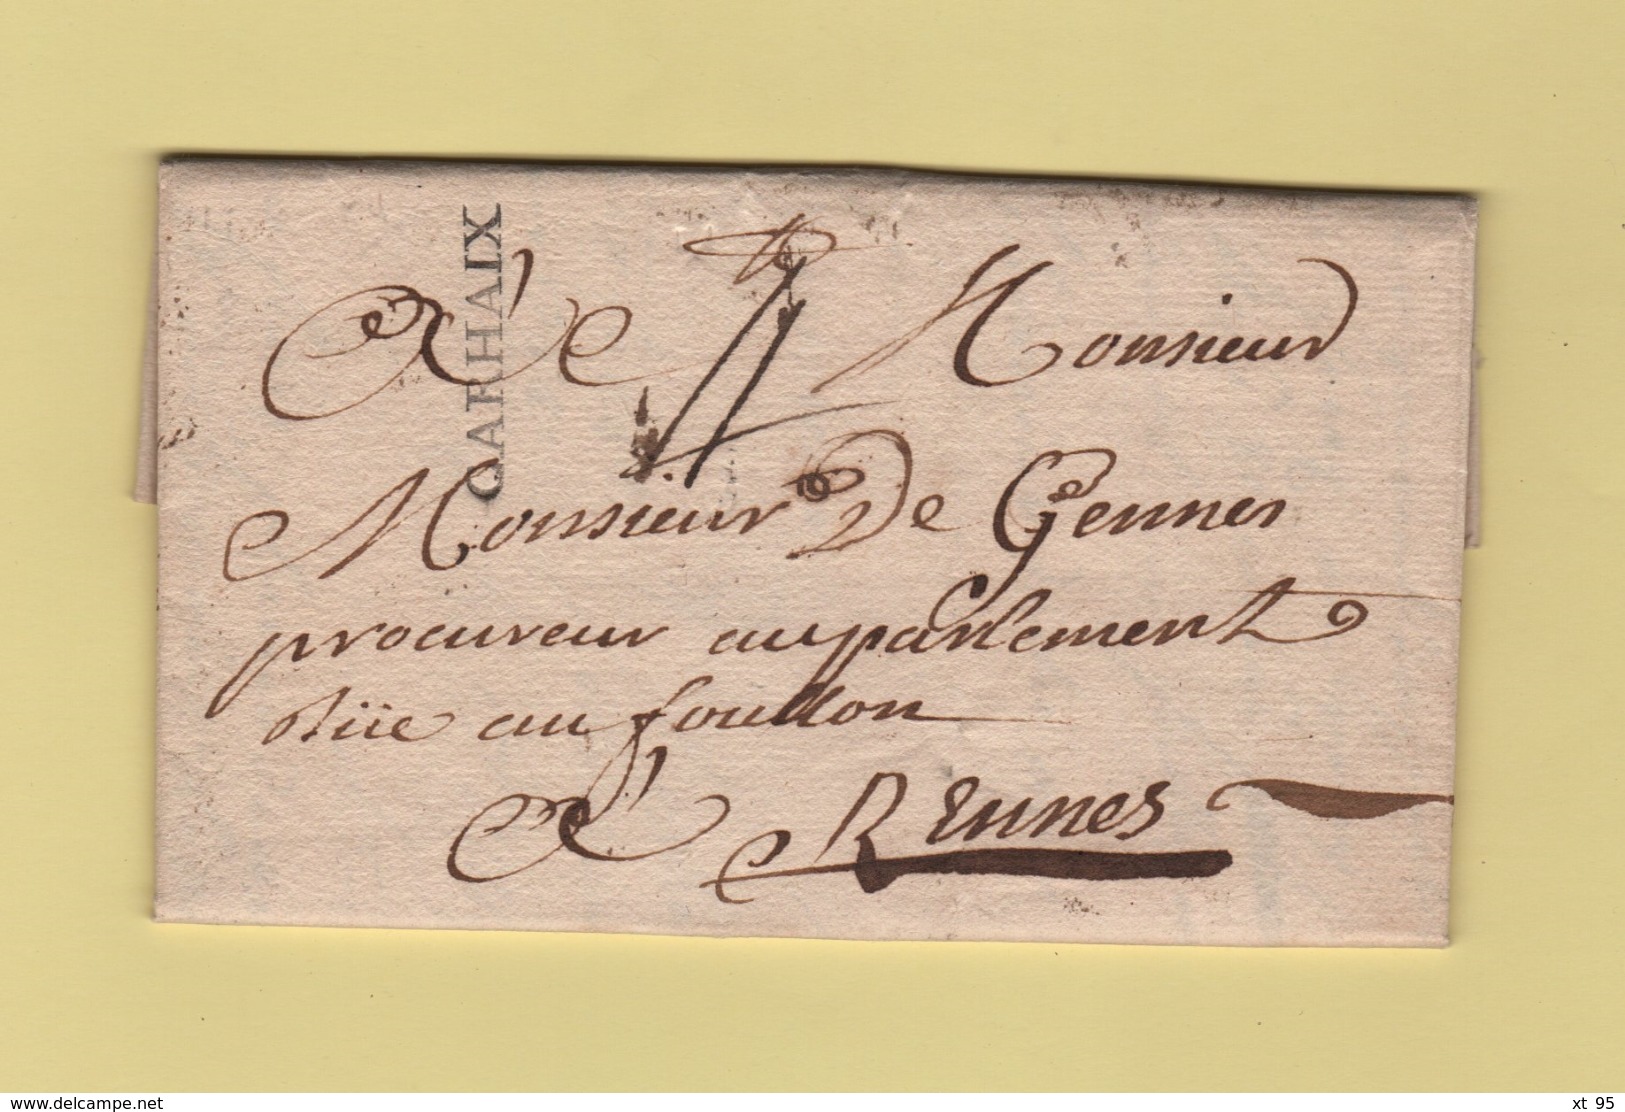 CARHAIX
A Monsieur
Monsieur De Gennes
procureur au parlement
Rüe au foullon
A Rennes
www.delcampe.net
xt 95